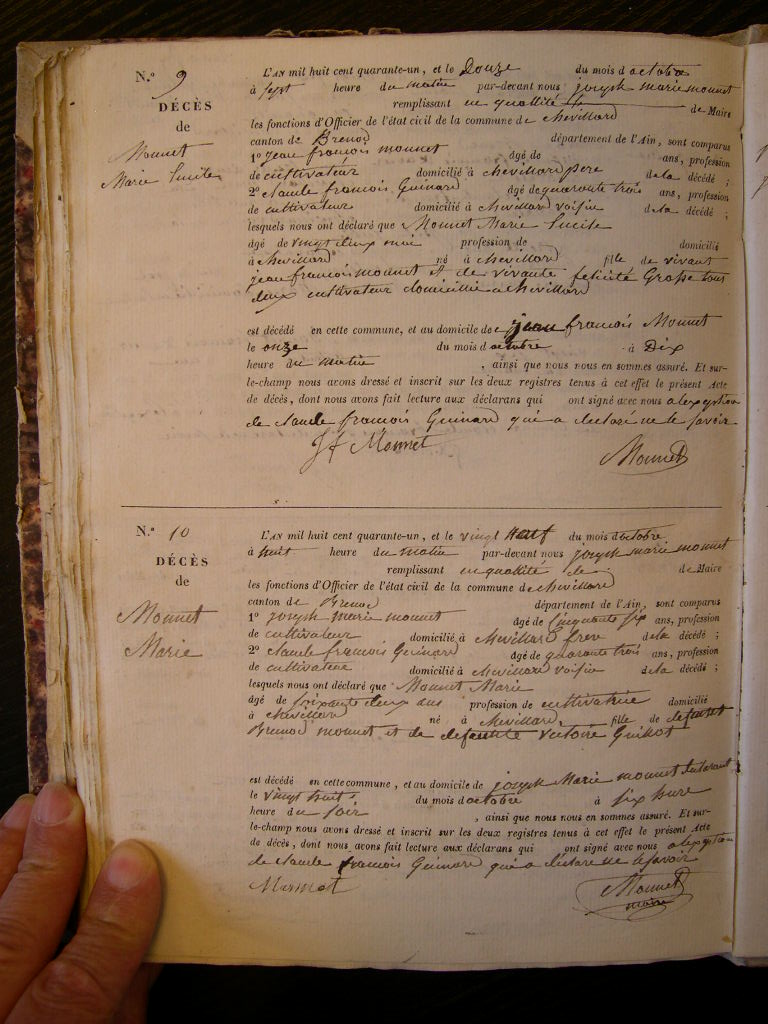 N.° 9
DÉCÈS
de
Monnet
Marie Lucile
L'AN mil huit cent quarante-un, et le Douze du mois d octobre
à sept heure du matin par-devant nous joseph marie monnet
remplissant en quallité de Maire
les fonctions d'Officier de l'état civil de la commune de chevillard
canton de Brenod département de l'Ain, sont comparus
1° jean francois monnet âgé de ans, profession
de cultivateur domicilié à chevillard pere de la décédé ;
2° claude francois Guinard âgé de quarante trois ans, profession
de cultivateur domicilié à chevillard voisin de la décédé ;
lesquels nous ont déclaré que Monnet Marie Lucile
âgé de vingt deux moi profession de domicilié
à chevillard né à chevillard fille de vivant
jean francois monnet et de vivante felicité Grosse tous
deux cultivateur domicillié a chevillard
est décédé en cette commune, et au domicile de jean francois Monnet
le onze du mois d octobre à Dix
heure du matin , ainsi que nous nous en sommes assuré. Et sur-
le-champ nous avons dressé et inscrit sur les deux registres tenus à cet effet le présent Acte
de décès, dont nous avons fait lecture aux déclarans qui ont signé avec nous a lexception
de claude francois Guinard qui a declaré ne le savoir
Jf Monnet Monnet
N.° 10
DÉCÈS
de
Monnet
Marie
L'AN mil huit cent quarante-un, et le vingt neuf du mois d octobre
à huit heure du matin par-devant nous joseph marie monnet
remplissant en quallité de de Maire
les fonctions d'Officier de l'état civil de la commune de chevillard
canton de Brenod département de l'Ain, sont comparus
1° joseph marie monnet âgé de Cinquante six ans, profession
de cultivateur domicilié à chevillard frere de la décédé ;
2° claude francois Guinard âgé de quarante trois ans, profession
de cultivateur domicilié à chevillard voisin de la décédé ;
lesquels nous ont déclaré que Monnet Marie
âgé de soixante deux ans profession de cultivatrice domicilié
à chevillard né à chevillard fille de defunt
Brenod monnet et de defunte victoire Guillot
est décédé en cette commune, et au domicile de joseph Marie monnet
le vingt huit du mois d octobre à six hure
heure du soir , ainsi que nous nous en sommes assuré. Et sur-
le-champ nous avons dressé et inscrit sur les deux registres tenus à cet effet le présent Acte
de décès, dont nous avons fait lecture aux déclarans qui ont signé avec nous a lexception
de claude francois Guinard qui a declaré ne le savoir
Monnet
maire